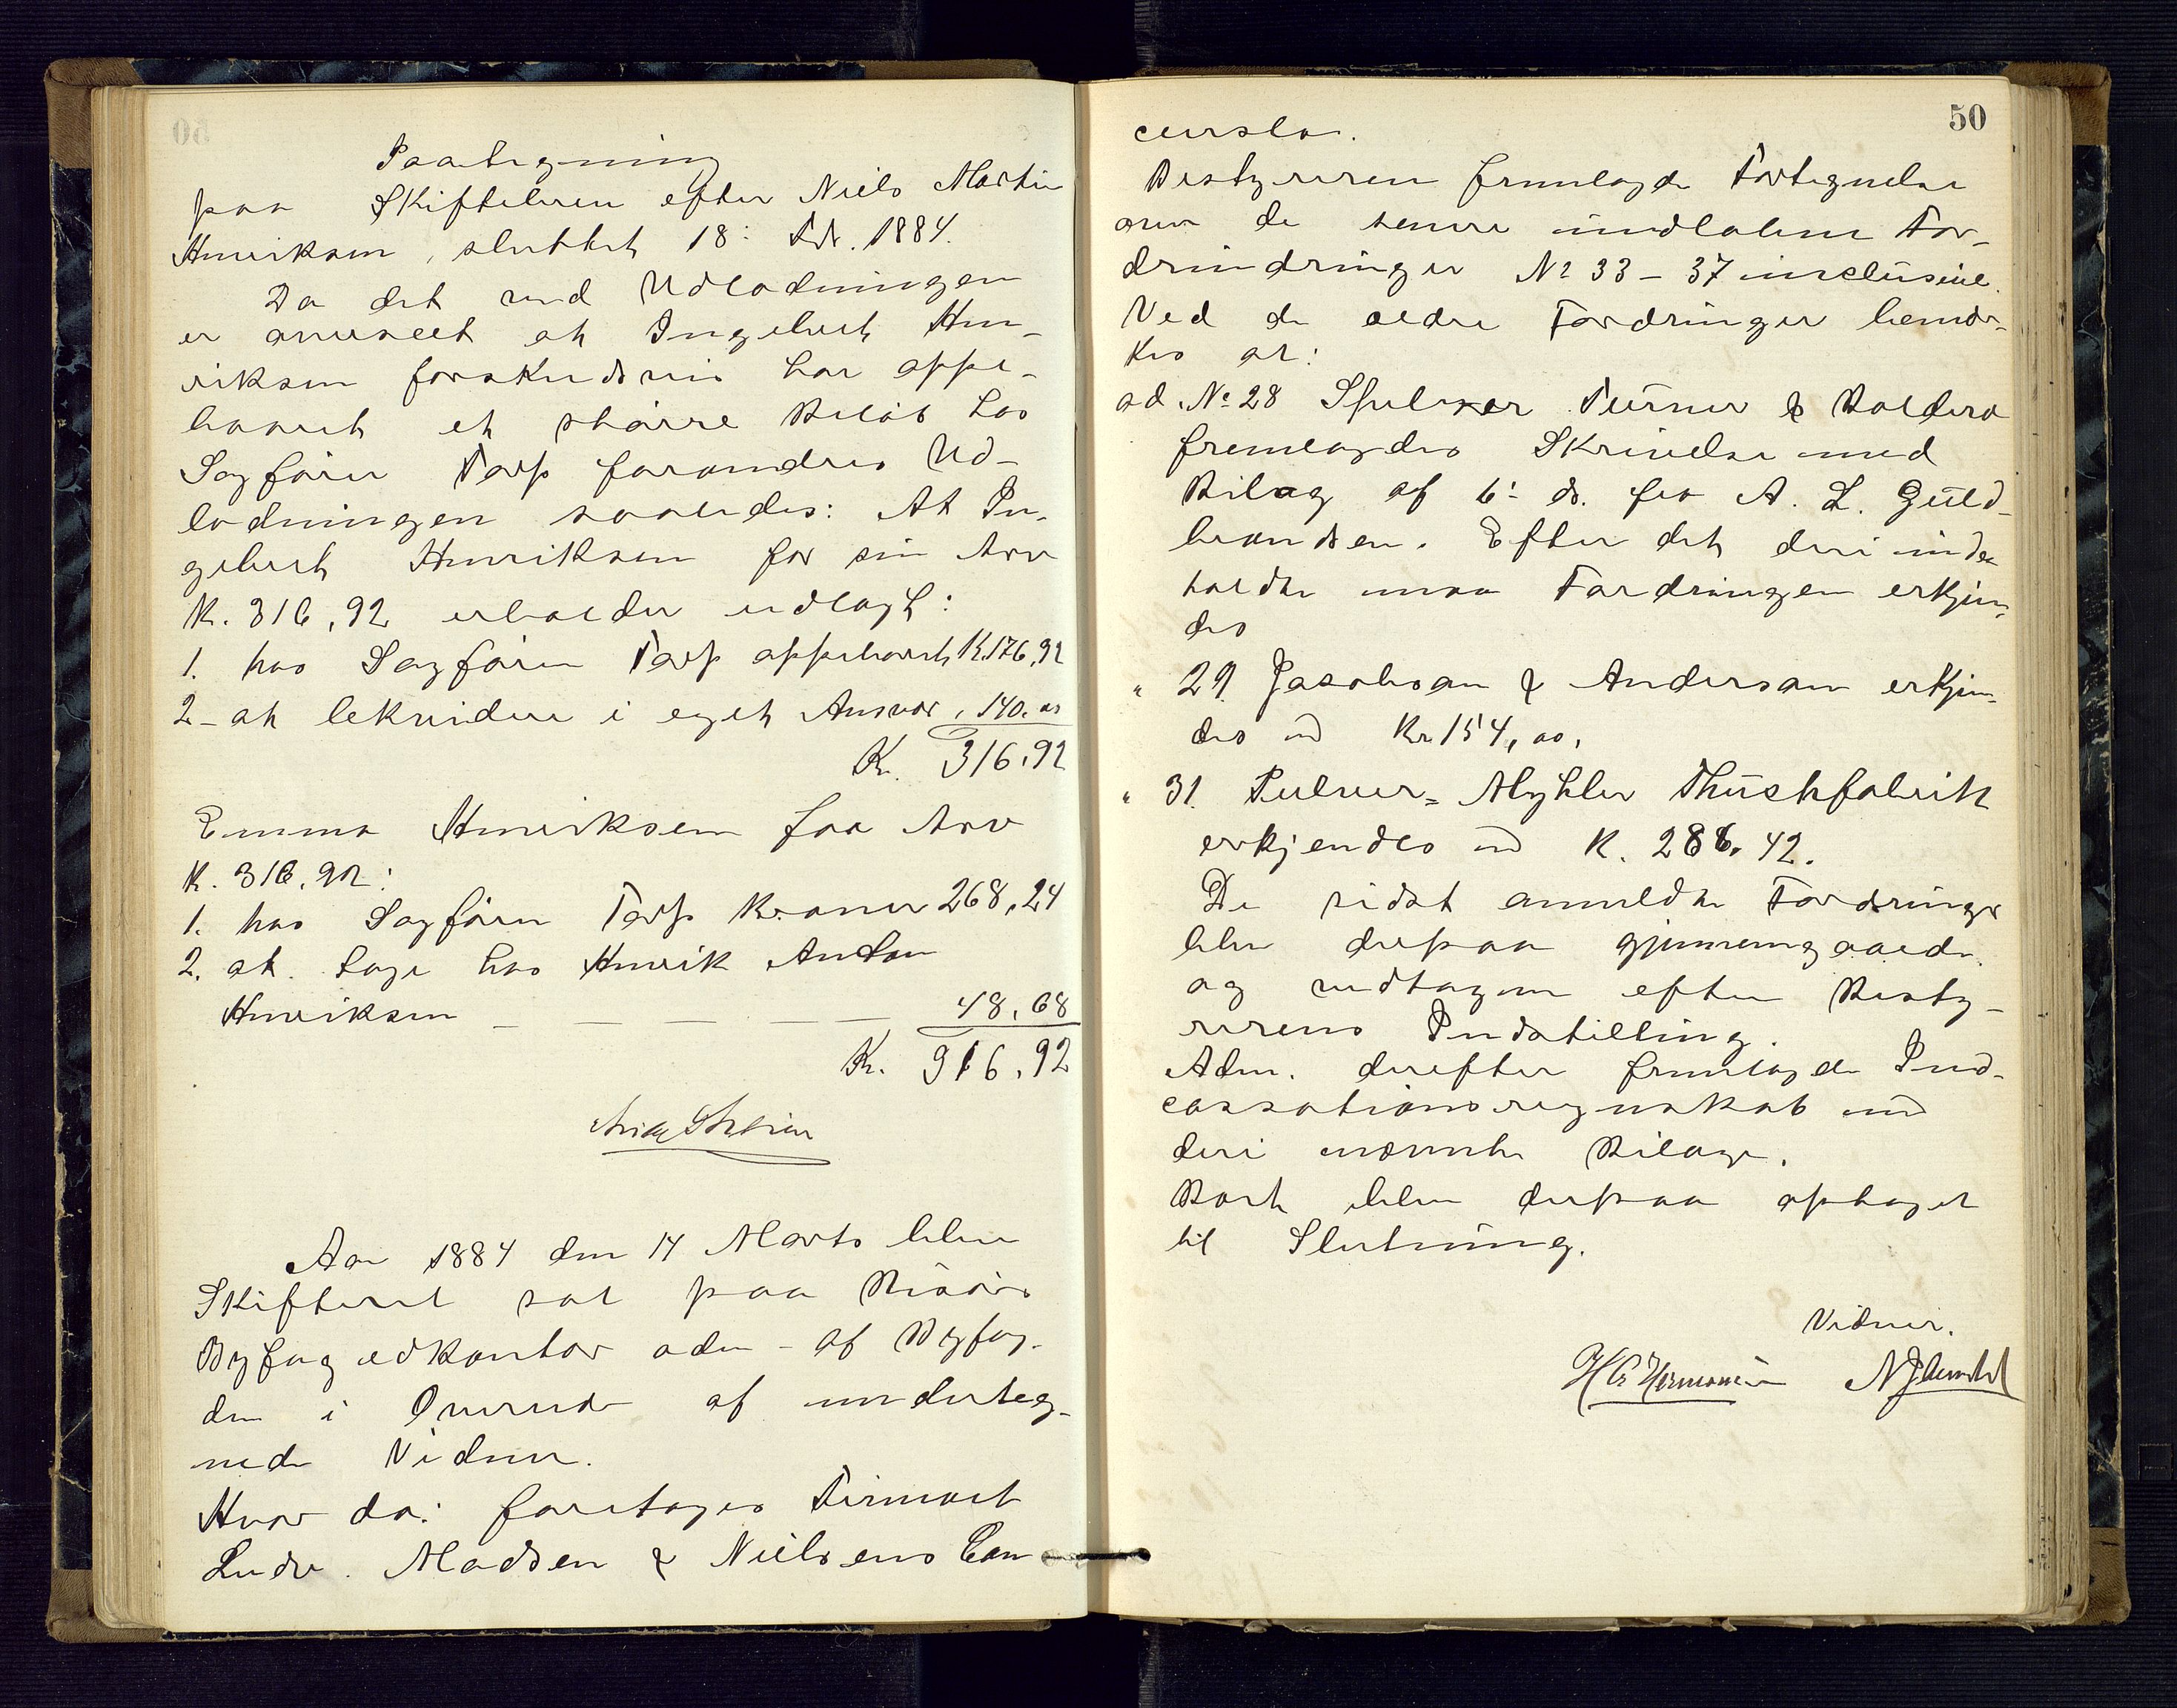 Paategning
paa Skifteleren efter Niels Martin
Henriksen, sluttet 18: Fbr. 1884.
Da det ved Udlodningen
er overseet at Ingebret Hen-
riksen forskudsvis har oppe-
baaret et större Beløb hos
Sagförer Tarp forandres Ud-
lodningen saaledes: At In-
gebret Henriksen for sin Arv
K. 316,92 erholder udlagt:
1. hos Sagförer Tarp oppebaaret K. 176,92
2- at lekvidere i eget Ansvar „ 140.00
Kr. 316,92
Emma Henriksen faa Arv
K. 316,92:
1. hos Sagförer Tarp Kroner 268,24
2. at tage hos Henrik Anton
Henriksen 48,68
Kr. 316,92
Aar 1884 den 14 Marts blev
Skifteret sat paa Risörs
Byfogedkontor adm- af Byfog-
den i Overvær af underteg-
nede Vidner.
Hvor da: foretoges Firmaet
Ludv. Madsen & Nielsens Con
50
curslo.
Bestyreren fremlagde Fortegnelse
over de senere indlobne For-
dringer No 33 - 37 inclusive.
Ved de ældre Fordringer bemær-
kes at:
ad. No 28 Turner &
fremlagdes Skrivelse med
Bilag af 6: ds. fra A. L. Guld-
brandsen. Efter det deri inde
holdte maa Fordringen erkjen-
des
„ 29 Jacobsen & Andersen erkjen-
des m Kr 154, 00,
„ 31. Pulver-
erkjendes m K. 286, 42.
De sidst anmeldte Fordringer
blev derpaa gjennemgaaede
og vedtagne efter Besty-
rerens Indstilling.
Adm. derefter fremlagde Ind-
cassationsregnskab med
deri nævnte Bilage.
Boet blev derpaa optaget
til Slutning.
Vidner.